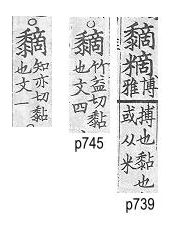 知亦切黏
也文一
竹益切黏
也文四
p745
博雅
搏也黏也
或从米
p739